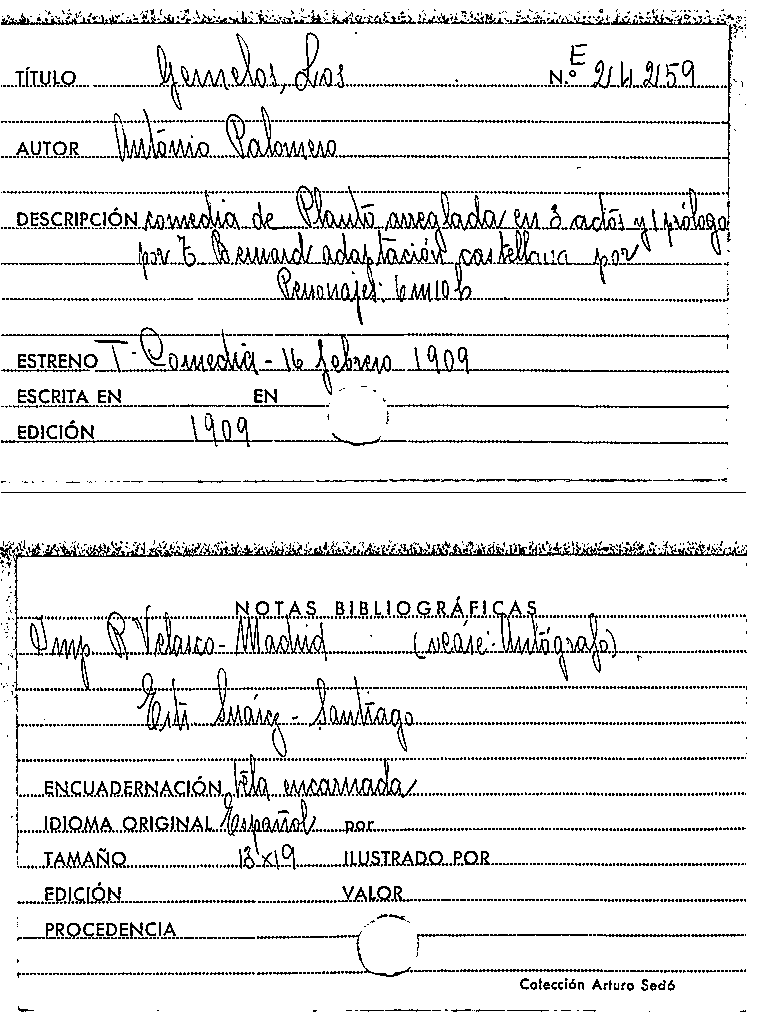 TÍTULO Gemelos, Los N.º E 242159
AUTOR Antonio Palomero
DESCRIPCIÓN comedia de Plauto arreglada en 3 actos y 1 prólogo
por T. Bernard adaptación castellana por
Personajes: 6m 10h
ESTRENO T. Comedia - 16 febrero 1909
ESCRITA EN EN
EDICIÓN 1909
NOTAS BIBLIOGRÁFICAS
Imp. R. Velasco - Madrid (veáse: Autógrafo)
Suárez - Santiago
ENCUADERNACIÓN tela encarnada
IDIOMA ORIGINAL Español por
TAMAÑO 13x19 ILUSTRADO POR
EDICIÓN VALOR
PROCEDENCIA
Colección Arturo Sedó